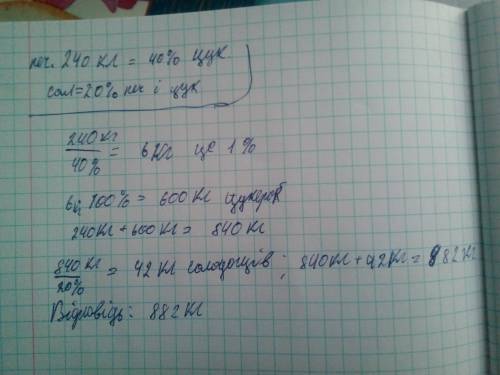 печ. 240 кг = 40% цук
сол = 20% печ і цук
240 кг
40%
= 6 кг це 1%
6 · 100% = 600 кг цукерок
240 кг + 600 кг = 840 кг
840 кг
20%
= 42 кг солодощів ; 840 кг + 42 кг = 882 кг
Відповідь: 882 кг